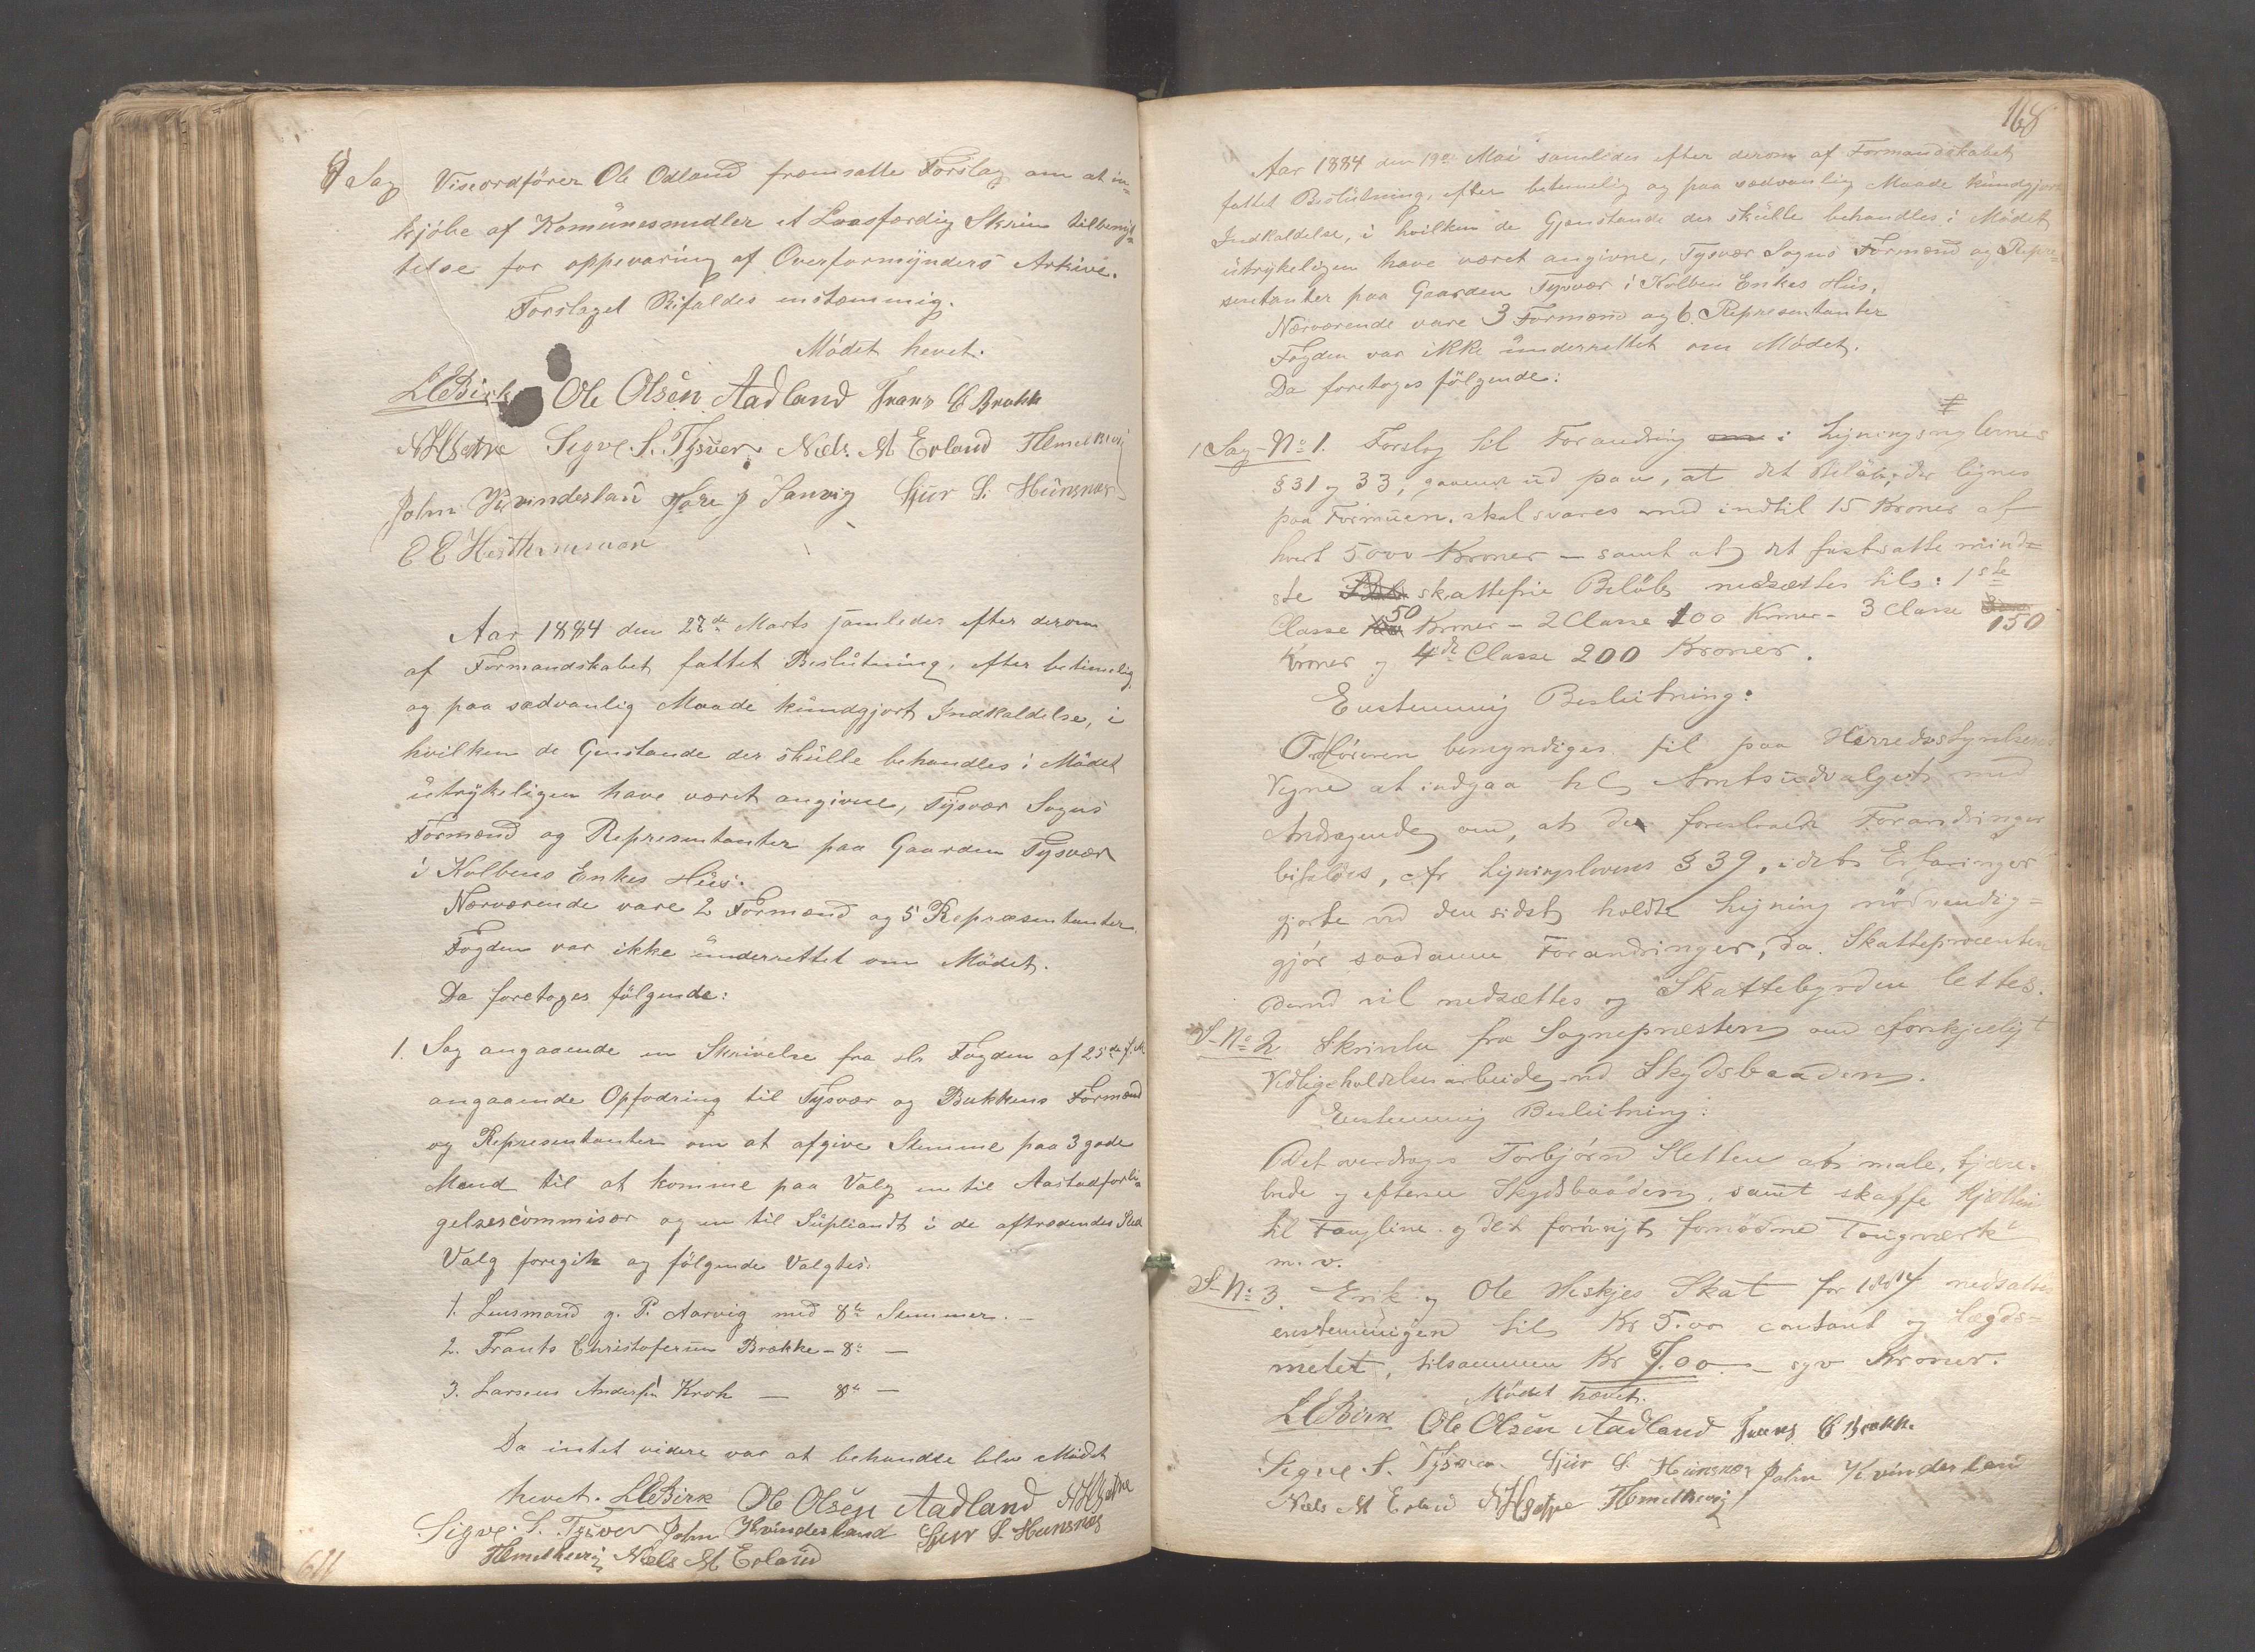 8 Sag Viseordfören Ole Odland fremsatte Forslag om at in-
kjöbe af Komünesmidler et Laasfærdig Skrin til benyt-
telse for oppevaring af Overformynders Arkive.
Forslaget Bifaldes enstemmig.
Mödet hevet.
LEBirk Ole Olsen Aadland Frans C Brakk
Sigve S. Tysver Niels M Erland
John Kvinderland Tore J Sanvig Sjur S. Hünsnæs
E E
Aar 1884 den 27de Marts samledes efter derom
af Formandskabet fattet Beslütning, efter betimelig
og paa sædvanlig Maade kündgjort Indkaldelse, i
hvilken de Genstande der skülle behandles i Mödet
ütrykeligen have været angivne, Tysvær Sogns
Formænd og Representanter paa Gaarden Tysvær
i Kolbens Enkes Hüs.
Nærværende vare 2 Formænd og 5 Repræsentanter.
Fogden var ikke ünderrettet om Mödet.
Da foretoges fölgende:
1. Sag angaaende en Skrivelse fra Hr Fogden af 25de f.M
angaaende Opfodring til Tysvær og Bukkens Formænd
og Representanter om at afgive Stemme paa 3 gode
Mænd til at komme paa Valg en til Aastadforli-
gelsescommisær og en til Süpliandt i de aftrædendes Sted
Valg foregik og fölgende Valgtes:
1. Lensmand g. P. Aarvig med 8te Stemmer. —
2. Frants Christofersen Brække - 8te —
3. Larsens Krok — 8te —
Da intet videre var at behandle blev Mödet
hevet. LEBirk Ole Olsen Aadland
Sigve S. Tysver John Kvinderland Sjur S. Hunsnæs
Niels M Erland
611
168
Aar 1884 den 19de Mai samledes efter derom af Formandskabet
fattet Beslütning, efter betimelig og paa sædvanlig Maade kündgjort
Indkaldelse, i hvilken de Gjenstande der skülle behandles i Mödet
ütrykeligen have været angivne, Tysvær Sogns Formænd og Repre-
sentanter paa Gaarden Tysvær i Kolben Enkes Hüs.
Nærværende vare 3 Formænd og 6 Representanter
Fogden var ikke ünderrettet om Mödet.
Da foretoges fölgende:
1 Sag No 1. Forslag til Forandring om i Ligningsreglernes
§ 31 og 33, gaaende ud paa, at det Beløb, der lignes
paa Formuen, skal svares med indtil 15 Kroner af
hvert 5000 Kroner — samt at det fastsatte mind-
ste skattefrie Beløb nedsættes til: 1ste
Classe 50 Kroner - 2 Classe 100 Kroner - 3 Classe 150
Kroner og 4de Classe 200 Kroner.
Enstemmig Beslutning:
Ordføreren bemyndiges til paa Herredsstyrelsens
Vegne at indgaa til Amtsudvalget med
Andragende om, at de foreslaaede Forandringer
bifaldes, cfr Ligningslovens § 39, idet Erfaringer
gjorte ved den sidst holdte Ligning nødvendig-
gjør saadanne Forandringer, da Skatteprocenten
derved vil nedsættes og Skattebyrden lettes.
S. No 2 Skrivelse fra Sognepræsten om forskjelligt
Vedligeholdelsesarbeide ved Skydsbaaden.
Enstemmig Beslutning:
Det overdrages Torbjørn Sletten at male, tjære-
brede og efterse Skydsbaaden, samt skaffe
til Fangline og det forøvrigt fornødne Tougværk
m. v.
S. No 3. Erik og Ole Heskjes Skat for 1884 nedsattes
enstemmigen til Kr 5.00 contant og Lægds-
metet, tilsammen Kr 7.00 — syv Kroner.
Mödet hævet.
LEBirk Ole Olsen Aadland Frans C Brakk
Sigve S. Tysver Sjür S. Hünsnæs John Kvinderland
Niels M Erland